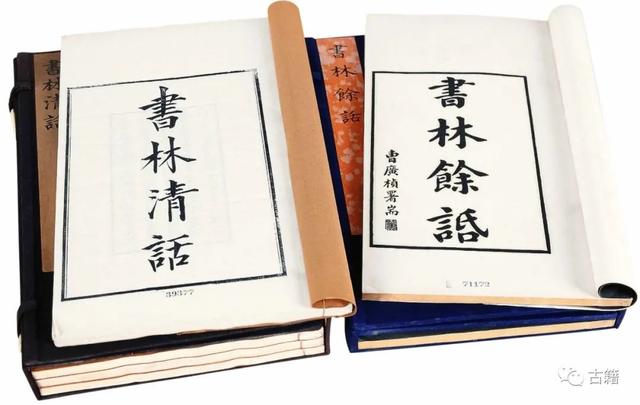 書林清話
書林清話
39377
書林餘話
書林餘䛡
曹廣楨署耑
71172
古籍